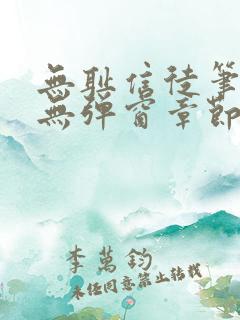 無耻信徒筆
無彈窗章節
李萬鈞
未經同意禁止轉載